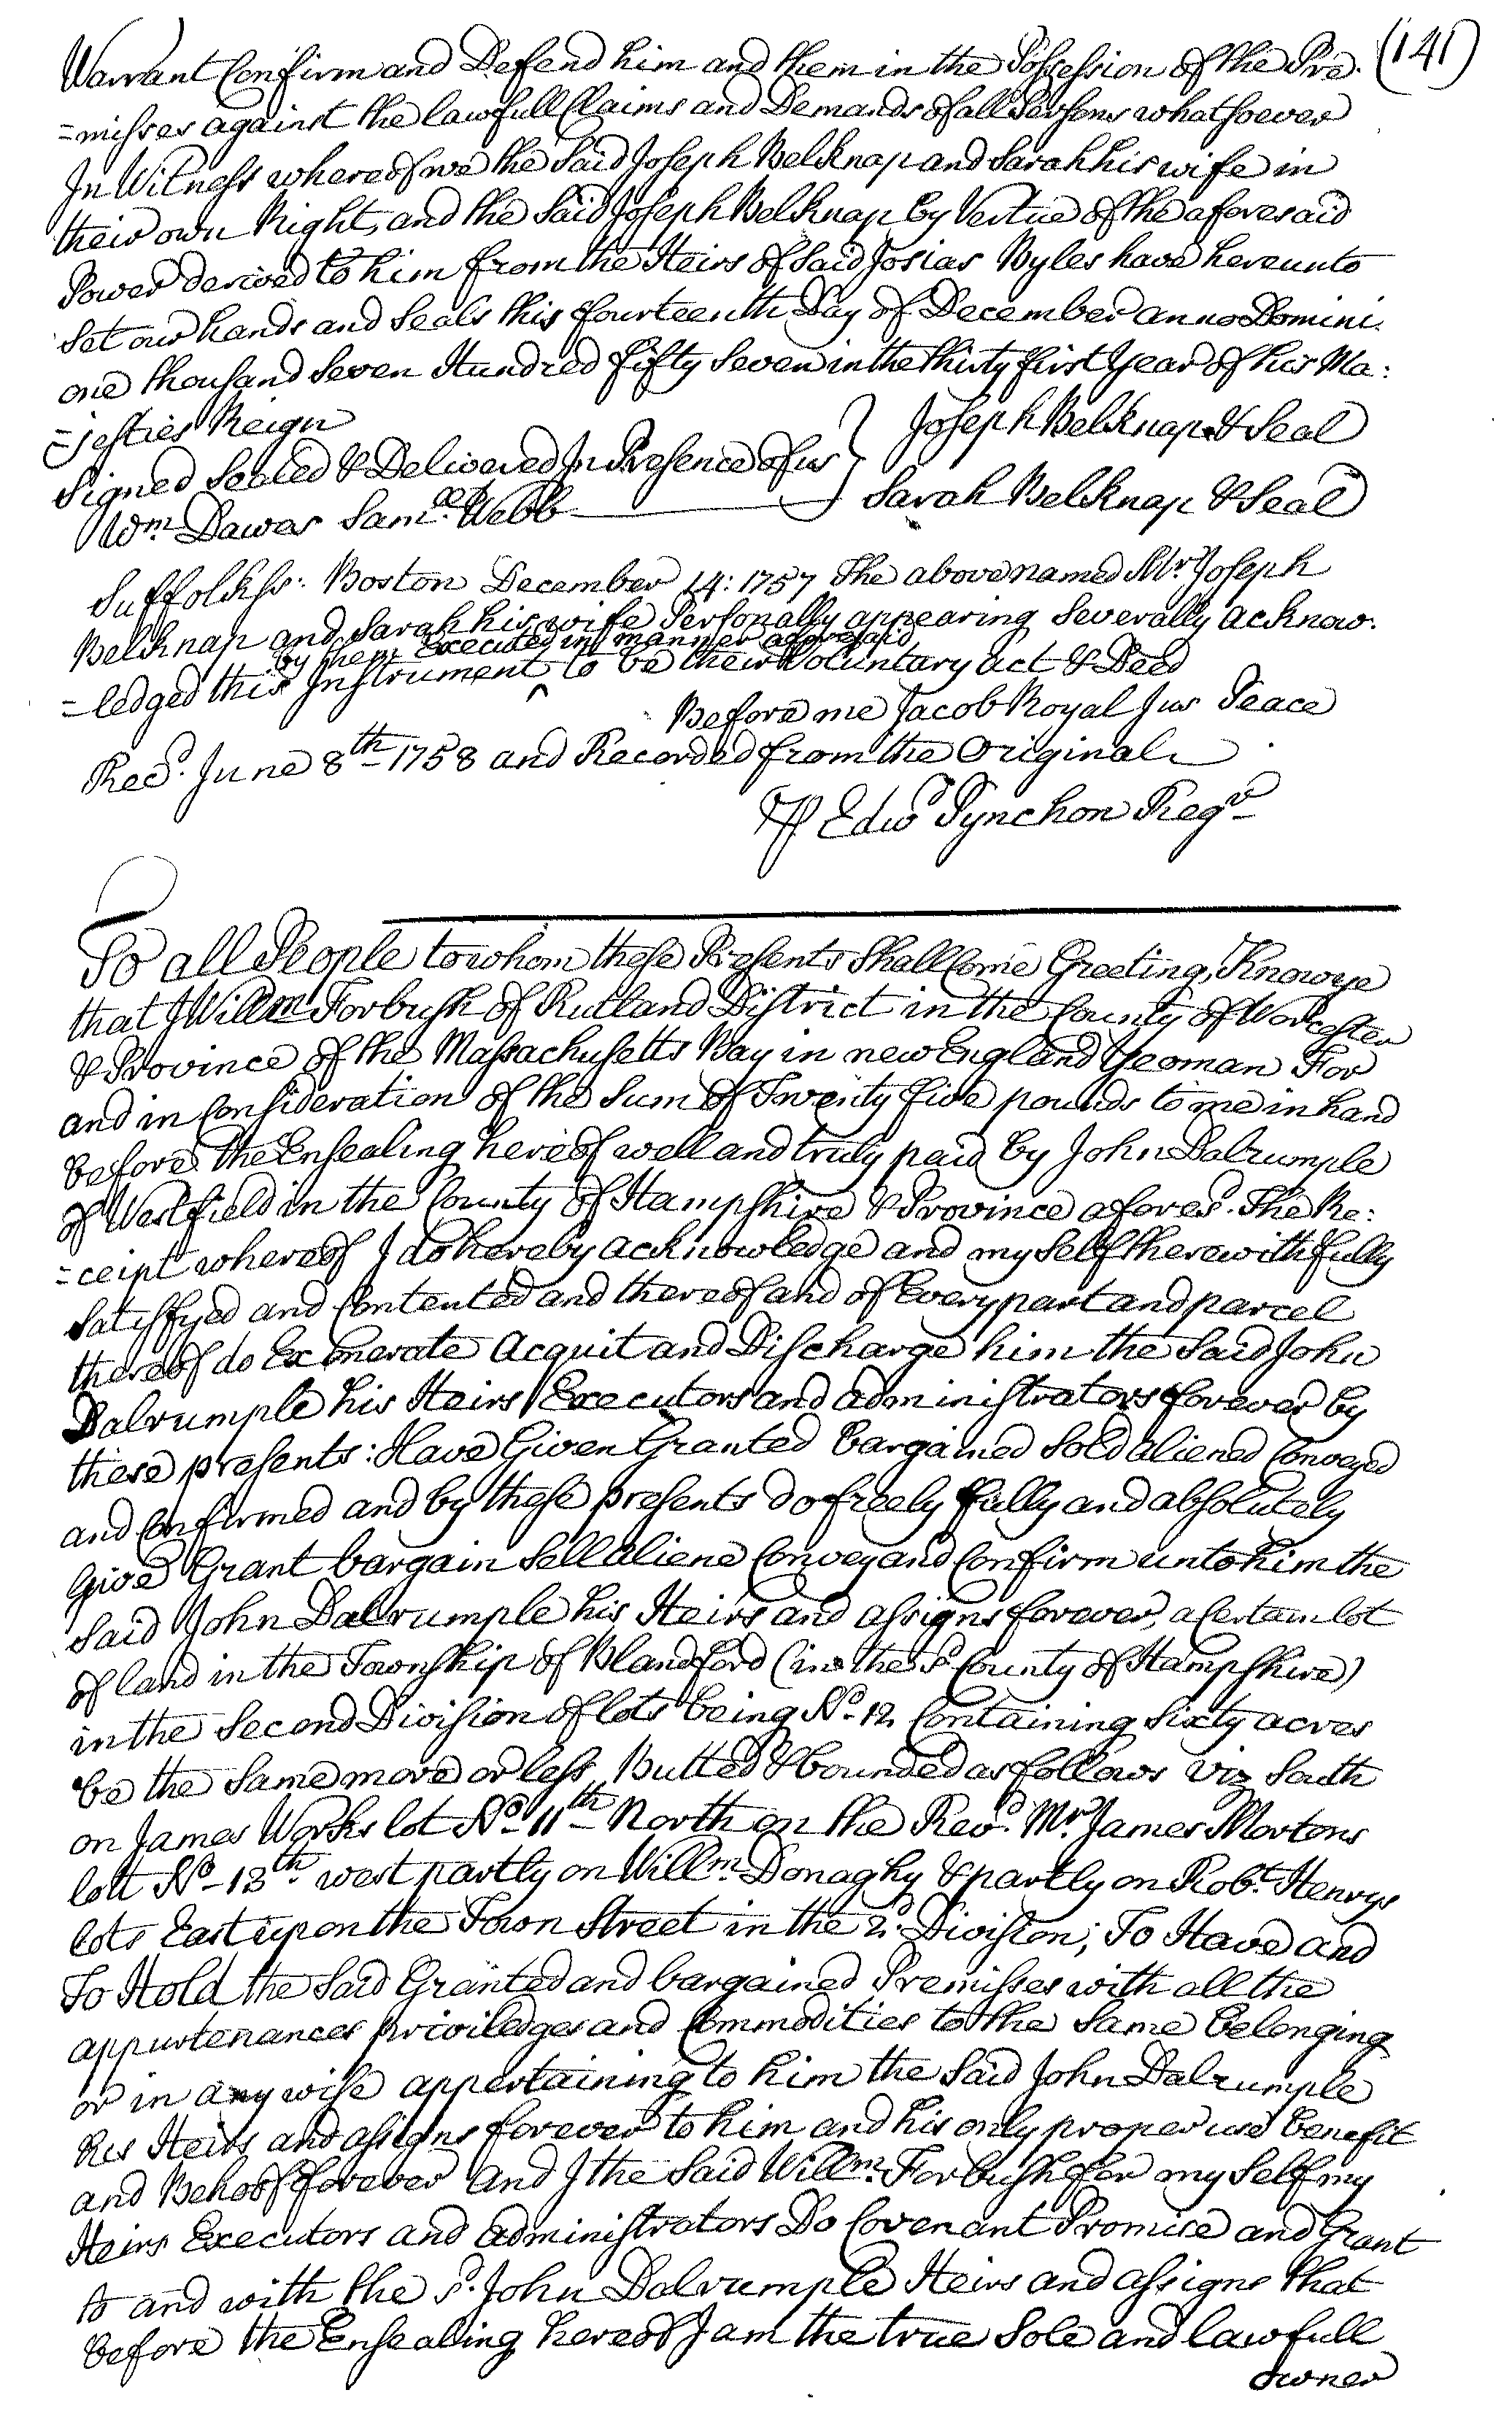 (141)
Warrant Confirm and Defend him and them in the Possession of the Pre.
=misses against the lawfull Claims and Demands of all Persons whatsoever
In Witness whereof we the Said Joseph Belknap and Sarah his wife in
their own Right, and the Said Joseph Belknap by Vertue of the aforesaid
Power derived to him from the Heirs of Said Josias Byles have hereunto
Set our hands and Seals this fourteenth Day of December anno Domini.
one thousand Seven Hundred fifty Seven in the thirty first Year of his Ma:
=jesties Reign
Joseph Belknap & Seal
Signed Sealed & Delivered In Presence of us
Sarah Belknap & Seal
Wm. Dawes Saml. Webb
Suffolk ss. Boston December 14: 1757 The above named Mr. Joseph
Belknap and Sarah his wife Personally appearing Severally acknow.
by them Executed in manner aforesaid
=ledged this Instrument ^ to be their Voluntary act & Deed
Before me Jacob Royal Jus Peace
Recd. June 8th 1758 and Recorded from the Original
℘ Edwd Pynchon Regr
To all People to whom these Presents Shall Come Greeting, Know ye
that I Willm. Forbush of Rutland District in the County of Worcester
& Province of the Massachusetts Bay in new England Yeoman For
and in Consideration of the Sum of Twenty five pounds to me in hand
before the Ensealing hereof well and truly paid by John Dalrumple
of Westfield in the County of Hampshire & Province afores.d The Re:
=ceipt whereof I do hereby acknowledge and my Self therewith fully
Satisfyed and Contented and thereof and of Every part and parcel
thereof do Exonerate Acquit and Discharge him the Said John
Dalrumple his Heirs Executors and administrators forever by
these presents: Have Given Granted bargained Sold aliened Conveyed
and Confirmed and by these presents do freely fully and absolutely
Give Grant bargain Sell aliene Convey and Confirm unto him the
Said John Dalrumple his Heirs and assigns forever, a Certain lot
of land in the Township of Blandford (in the Sd. County of Hampshire)
in the Second Division of lots being No. 12 Containing Sixty acres
be the Same more or less Butted & bounded as follows viz South
on James Works lot No. 11th North on the Revd. Mr. James Mortons
lott No. 13th. west partly on Willm. Donaghy & partly on Robt. Henrys
lots East upon the Town Street in the 2d. Division; To Have and
To Hold the Said Granted and bargained Premisses with all the
appurtenances priviledges and Commodities to the Same Belonging
or in any wise appertaining to him the Said John Dalrumple
his Heirs and assigns forever to him and his only proper use benefit
and Behoof forever And I the Said Willm. Forbush for my Self my
Heirs Executors and administrators Do Covenant Promise and Grant
to and with the Sd. John Dalrumple Heirs and assigns that
before the Ensealing hereof I am the true Sole and lawfull
owner